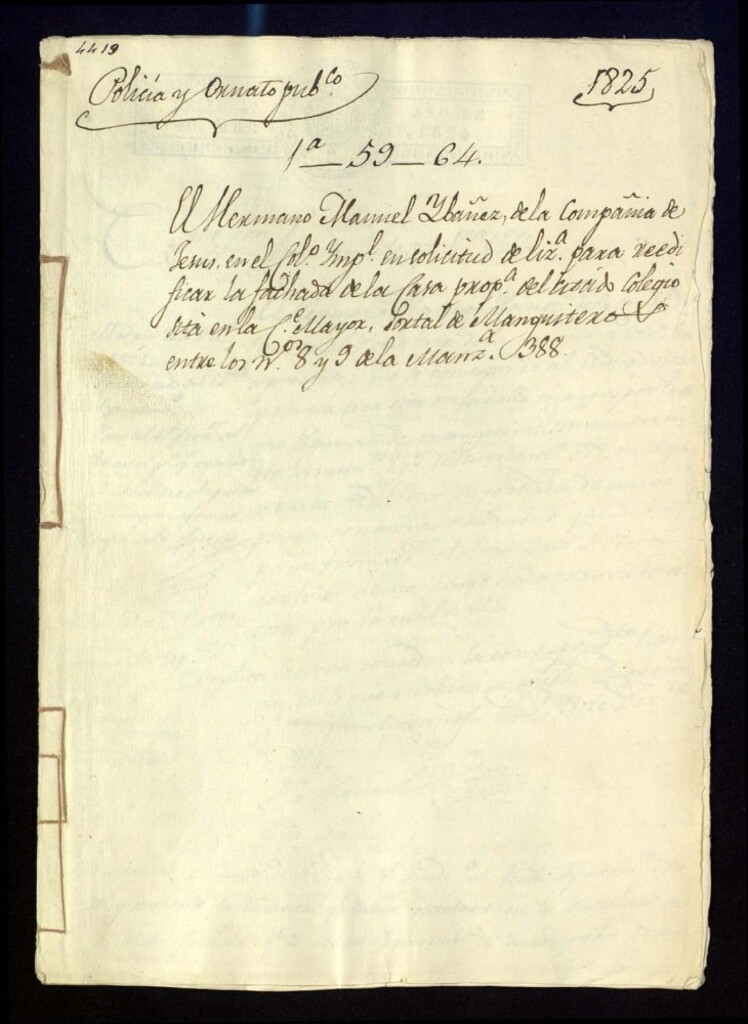 4419
Policía y Ornato pub.co
1825
1a — 59 — 64.
El Hermano Manuel Ybañez, de la Compañia de
Jesus, en el Col.o Ymp.l en solicitud de liz.a para reedi
ficar la fachada de la Casa prop.a del Colegio
sita en la C.e Mayor, Portal de Manguitero
entre los n.os 8 y 9 de la Manz.a 388.